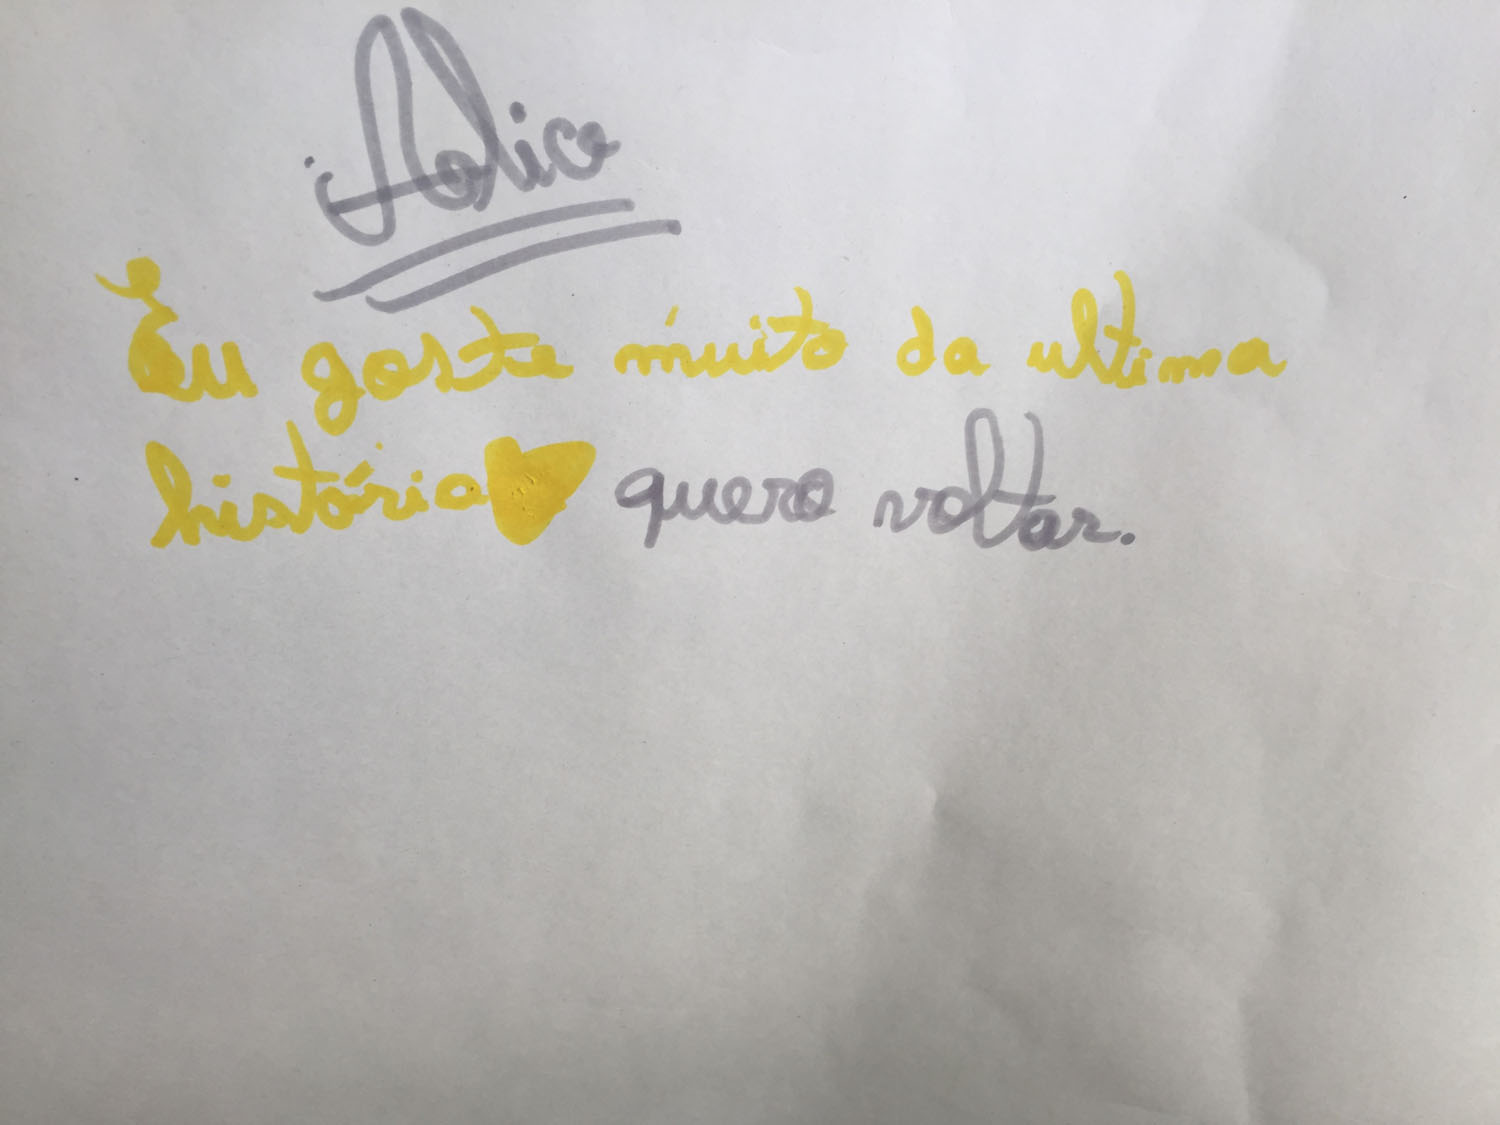 Alice
Eu goste muito da ultima
história quero voltar.